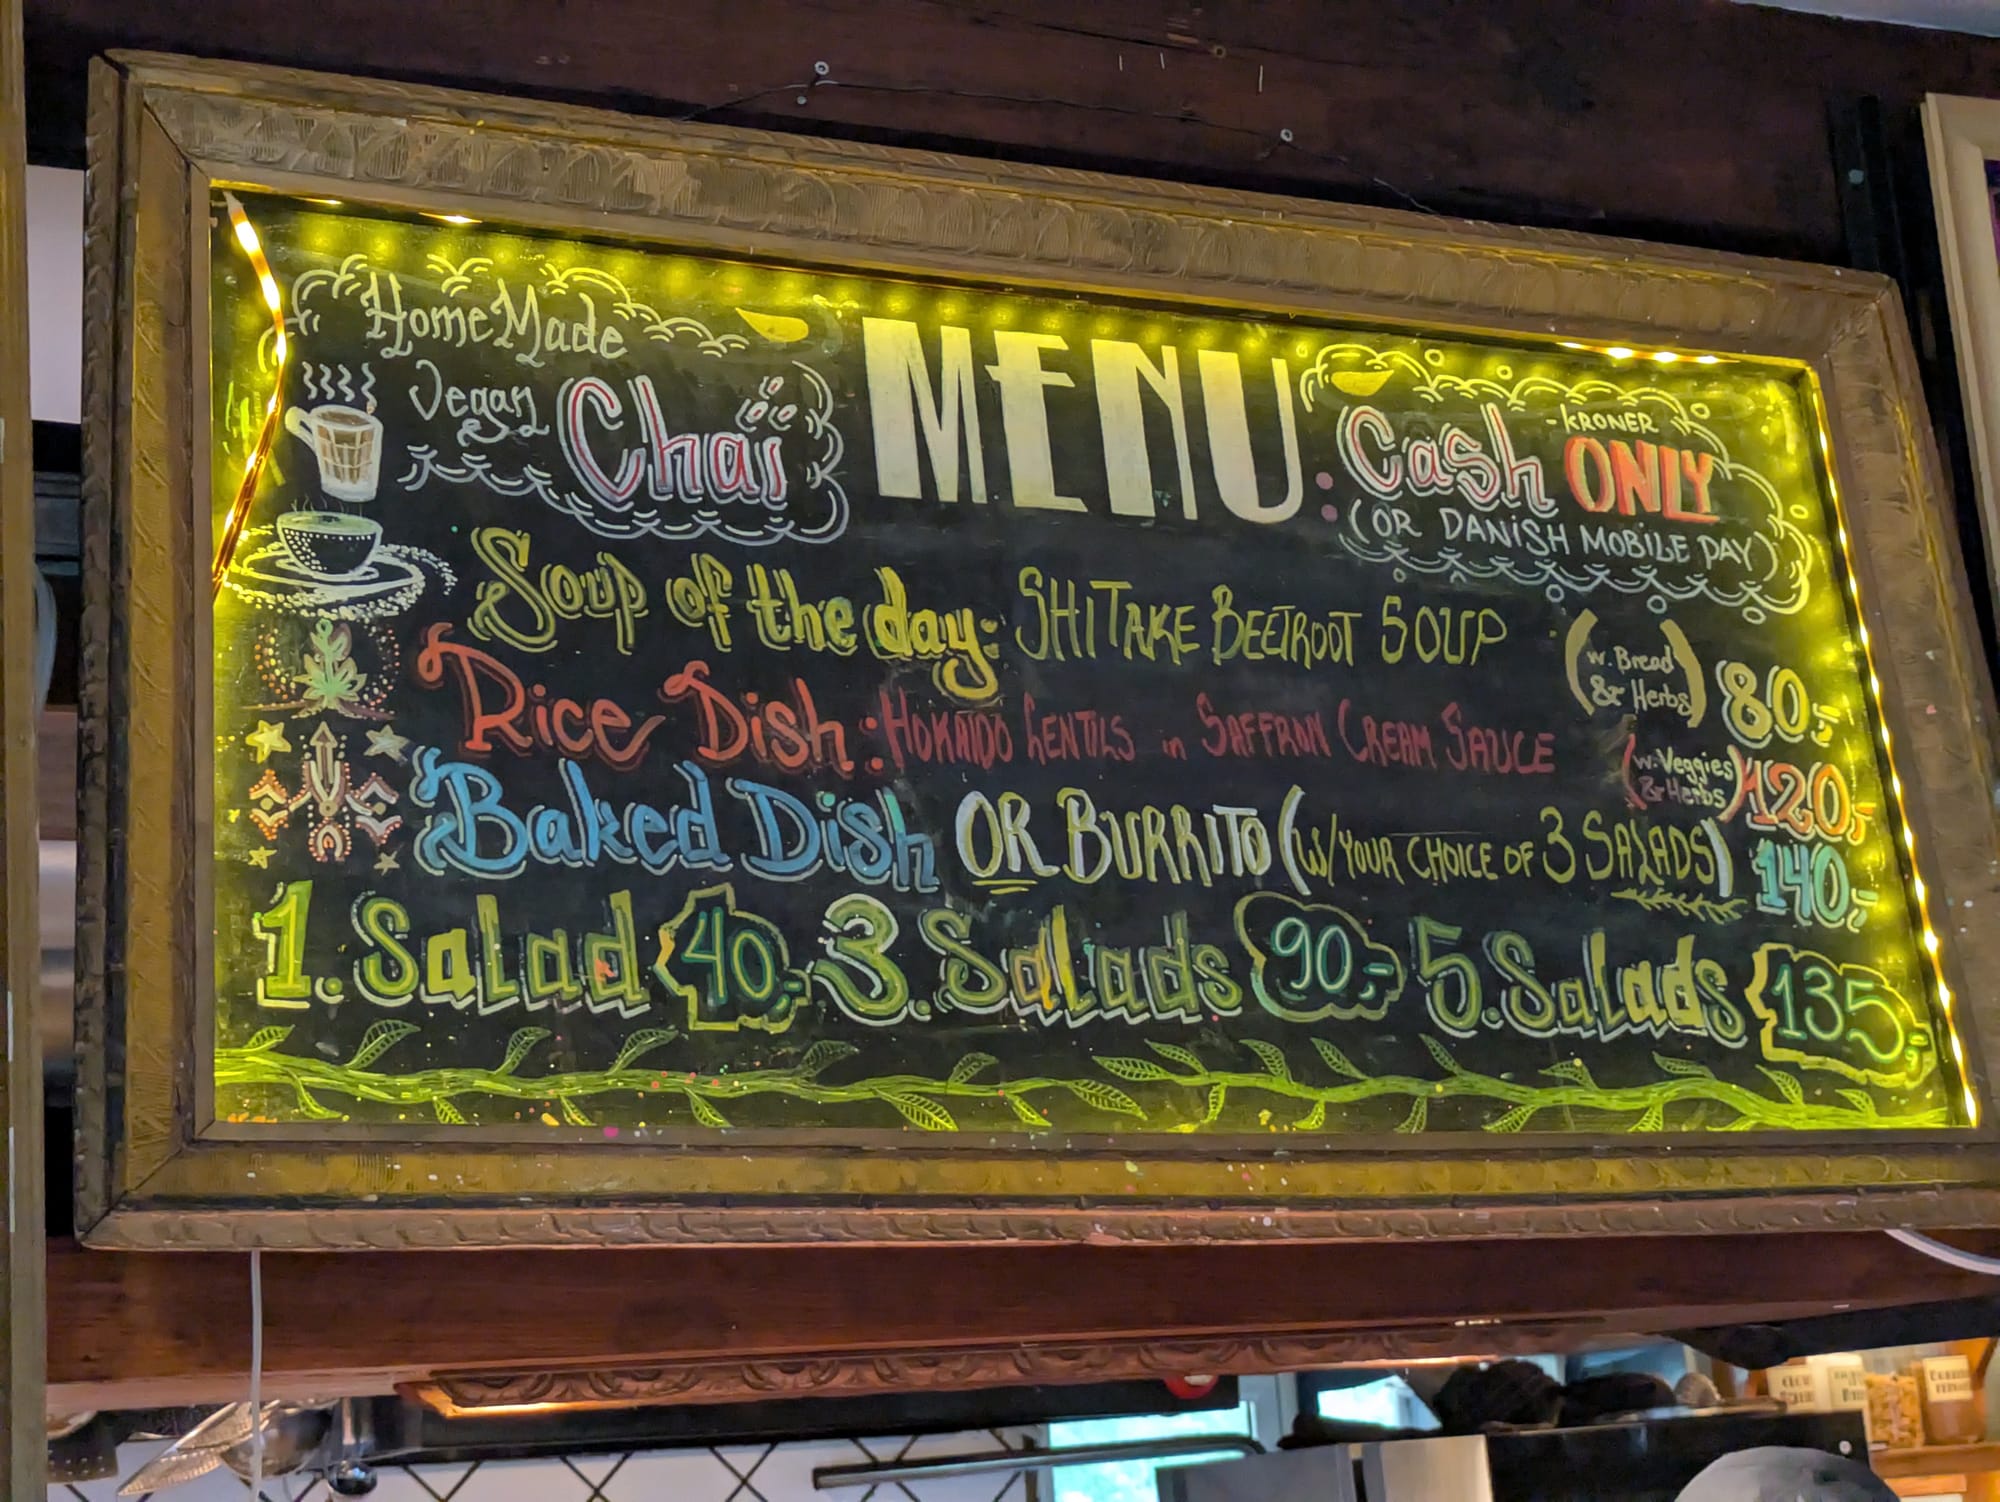 HomeMade
Vegan Chai
MENU:
Cash -KRONER ONLY
(OR DANISH MOBILE PAY)
Soup of the day: SHITAKE BEETROOT SOUP (w. Bread & Herbs) 80,-
Rice Dish: HOKAIDO LENTILS in SAFFRAN CREAM SAUCE (w. Veggies & Herbs) 120,-
Baked Dish OR BURRITO (W/YOUR CHOICE OF 3 SALADS) 140,-
1. Salad 40,- 3. Salads 90,- 5. Salads 135,-